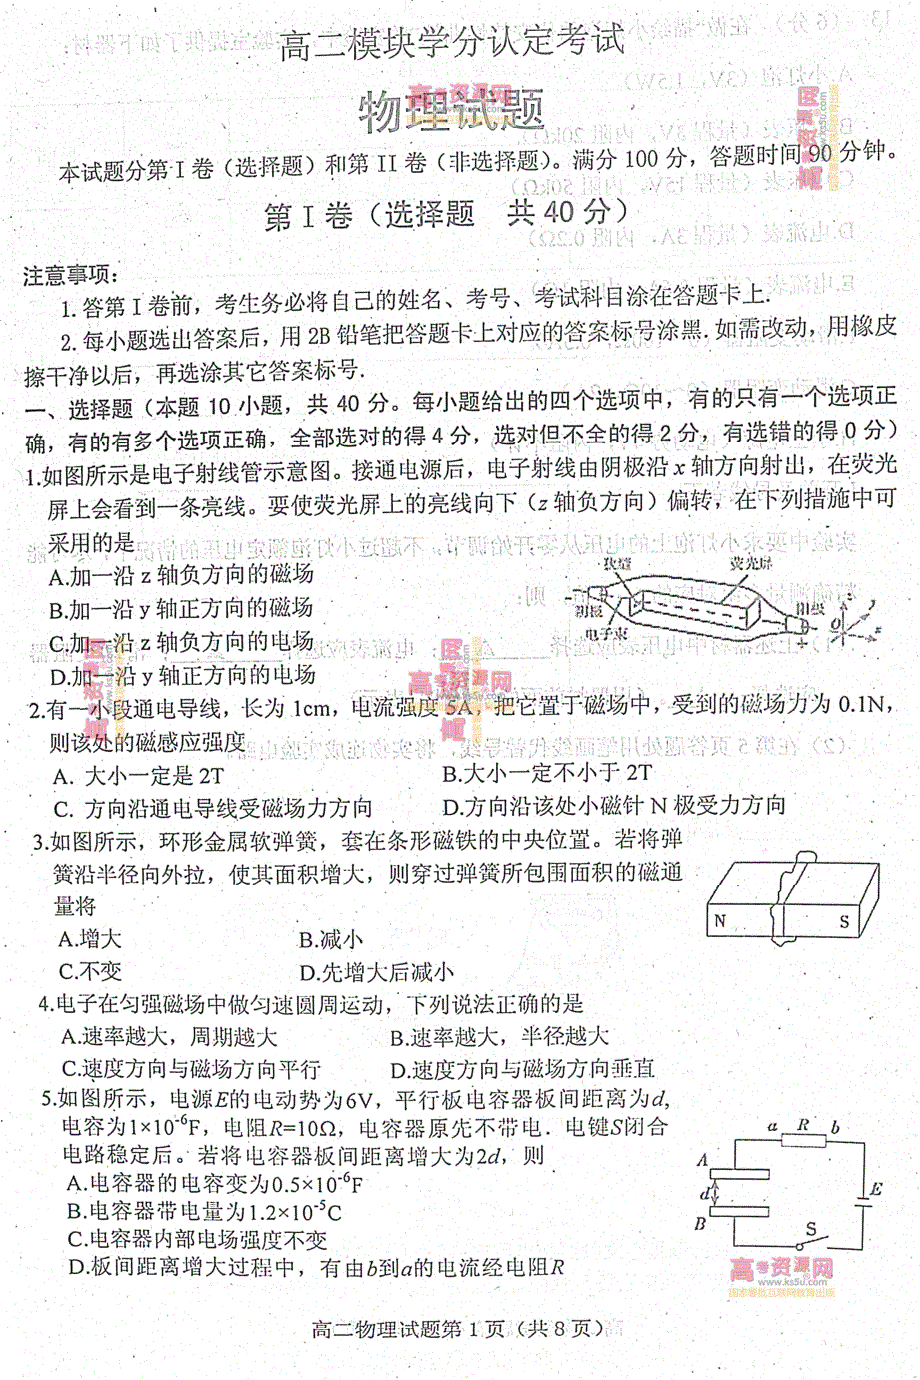 高二模块学分认定考试
物理试题
本试题分第 I 卷（选择题）和第 II 卷（非选择题）。满分 100 分，答题时间 90 分钟。
第 I 卷（选择题　共 40 分）
注意事项：
1. 答第 I 卷前，考生务必将自己的姓名、考号、考试科目涂在答题卡上.
2. 每小题选出答案后，用 2B 铅笔把答题卡上对应的答案标号涂黑. 如需改动，用橡皮
擦干净以后，再选涂其它答案标号.
一、选择题（本题 10 小题，共 40 分。每小题给出的四个选项中，有的只有一个选项正
确，有的有多个选项正确，全部选对的得 4 分，选对但不全的得 2 分，有选错的得 0 分）
1.如图所示是电子射线管示意图。接通电源后，电子射线由阴极沿 x 轴方向射出，在荧光
屏上会看到一条亮线。要使荧光屏上的亮线向下（z 轴负方向）偏转，在下列措施中可
采用的是
A.加一沿 z 轴负方向的磁场
B.加一沿 y 轴正方向的磁场
C.加一沿 z 轴负方向的电场
D.加一沿 y 轴正方向的电场
狭缝 荧光屏
阴极 阳极
电子束
z y O x
2.有一小段通电导线，长为 1cm，电流强度 5A，把它置于磁场中，受到的磁场力为 0.1N，
则该处的磁感应强度
A. 大小一定是 2T B.大小一定不小于 2T
C. 方向沿通电导线受磁场力方向 D.方向沿该处小磁针 N 极受力方向
3.如图所示，环形金属软弹簧，套在条形磁铁的中央位置。若将弹
簧沿半径向外拉，使其面积增大，则穿过弹簧所包围面积的磁通
量将
A.增大 B.减小
C.不变 D.先增大后减小
N S
4.电子在匀强磁场中做匀速圆周运动，下列说法正确的是
A.速率越大，周期越大 B.速率越大，半径越大
C.速度方向与磁场方向平行 D.速度方向与磁场方向垂直
5.如图所示，电源E的电动势为6V，平行板电容器板间距离为d,
电容为1×10⁻⁶F，电阻R=10Ω，电容器原先不带电．电键S闭合
电路稳定后。若将电容器板间距离增大为2d，则
A.电容器的电容变为0.5×10⁻⁶F
B.电容器带电量为1.2×10⁻⁵C
C.电容器内部电场强度不变
D.板间距离增大过程中，有由b到a的电流经电阻R
a R b
A
d E
B
S
高考资源网
www.ks5u.com
高二物理试题第 1 页（共 8 页）